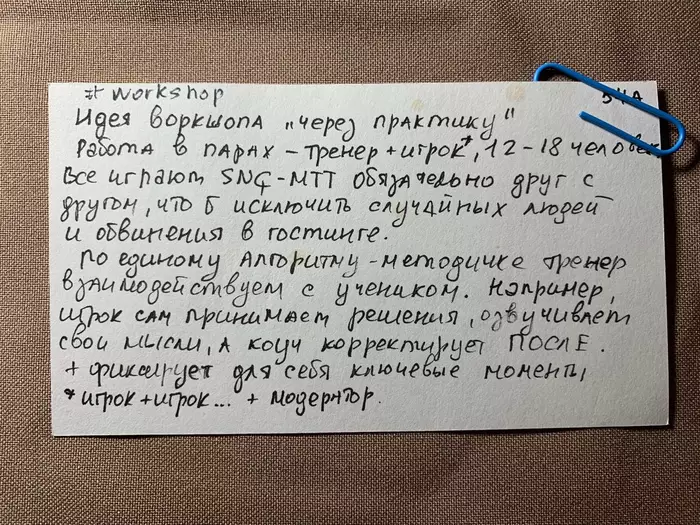 # workshop
54А
Идея воркшопа „через практику"
Работа в парах – тренер + игрок*, 12-18 челове
Все играют SNG-MTT обязательно друг с
другом, что б исключить случайных людей
и обвинения в гостинге.
По единому алгоритму-методичке тренер
взаимодействуем с учеником. Например,
игрок сам принимает решения, озвучивает
свои мысли, а коуч корректирует ПОСЛЕ.
+ фиксирует для себя ключевые моменты
* игрок + игрок... + модератор.